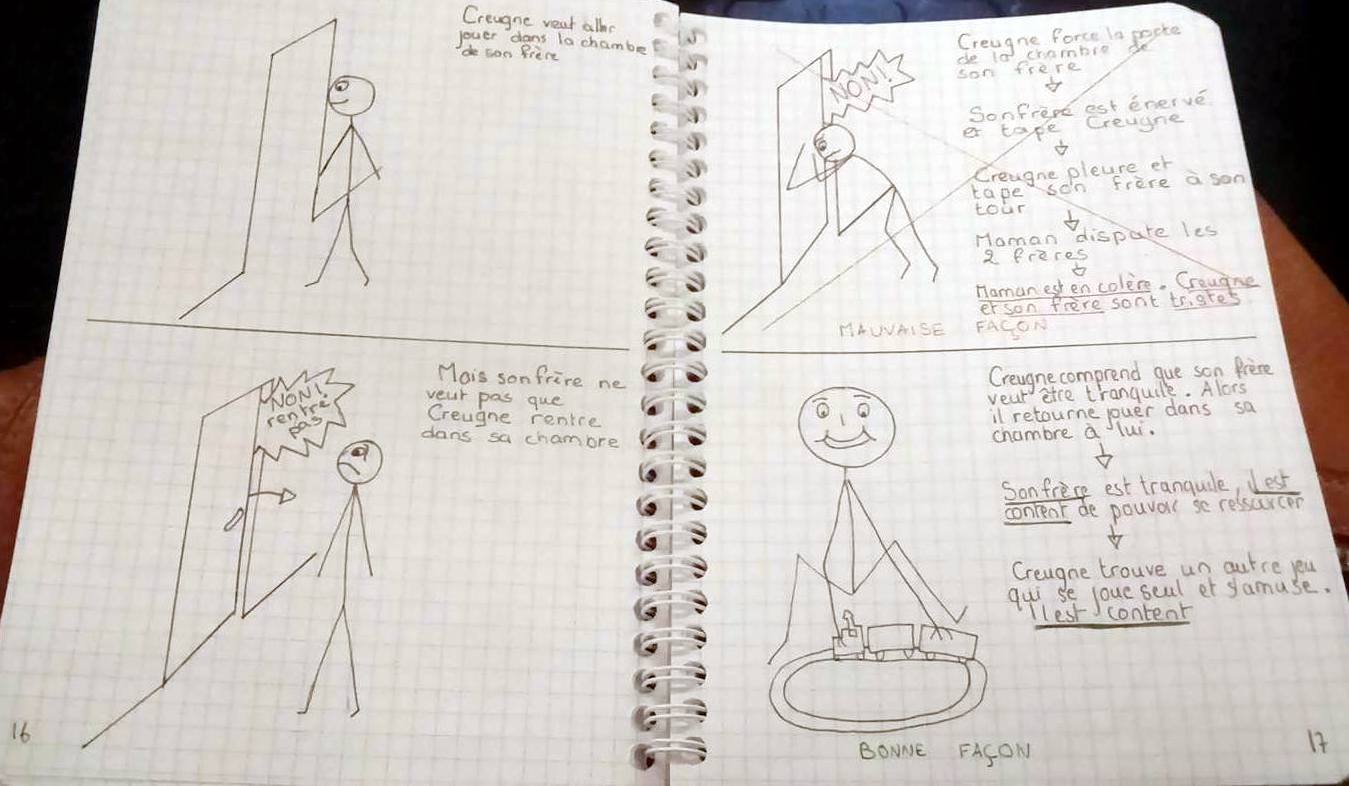 Creugne veut aller
jouer dans la chambe
de son frère
NON!
rentre
pas
Mais son frère ne
veut pas que
Creugne rentre
dans sa chambre
16
NON!
Creugne force la porte
de la chambre de
son frère
Son frère est énervé
et tape Creugne
Creugne pleure et
tape son frère à son
tour
Maman dispute les
2 frères
Maman est en colère. Creugne
et son frère sont tristes
MAUVAISE FAÇON
Creugne comprend que son frère
veut être tranquile. Alors
il retourne jouer dans sa
chambre à lui.
Son frère est tranquile, il est
content de pouvoir se ressurcer
Creugne trouve un autre jeu
qui se joue seul et s'amuse.
Il est content
BONNE FAÇON
17